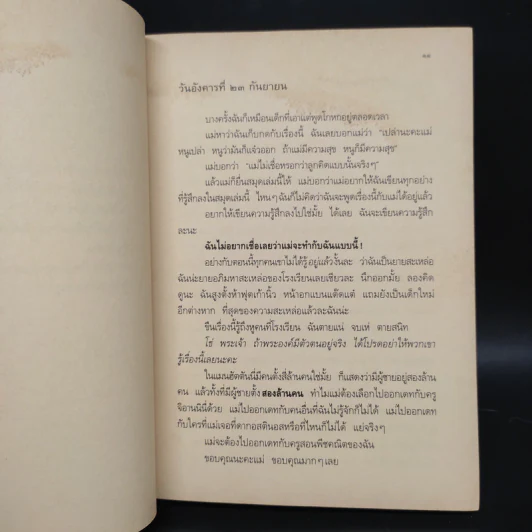 ๑๑
วันอังคารที่ ๒๓ กันยายน
บางครั้งฉันก็เหมือนเด็กที่เอาแต่พูดโกหกอยู่ตลอดเวลา
แม่หาว่าฉันเก็บกดกับเรื่องนี้ ฉันเลยบอกแม่ว่า “เปล่านะคะแม่
หนูเปล่า หนูว่ามันก็แจ๋วออก ถ้าแม่มีความสุข หนูก็มีความสุข”
แม่บอกว่า “แม่ไม่เชื่อหรอกว่าลูกคิดแบบนั้นจริงๆ”
แล้วแม่ก็ยื่นสมุดเล่มนี้ให้ แม่บอกว่าแม่อยากให้ฉันเขียนทุกอย่าง
ที่รู้สึกลงในสมุดเล่มนี้ ไหนๆ ฉันก็ไม่คิดว่าฉันจะพูดเรื่องนี้กับแม่ได้อยู่แล้ว
อยากให้เขียนความรู้สึกลงไปใช่มั้ย ได้เลย ฉันจะเขียนความรู้สึก
ละนะ
ฉันไม่อยากเชื่อเลยว่าแม่จะทำกับฉันแบบนี้!
อย่างกับตอนนี้ทุกคนเขาไม่ได้รู้อยู่แล้วงั้นละ ว่าฉันเป็นยายสะเหล่อ
ฉันน่ะยายอภิมหาสะเหล่อของโรงเรียนเลยเชียวละ นึกออกมั้ย ลองคิด
ดูนะ ฉันสูงตั้งห้าฟุตเก้านิ้ว หน้าอกแบนแต๊ดแต๋ แถมยังเป็นเด็กใหม่
อีกต่างหาก ที่สุดของความสะเหล่อแล้วละฉันน่ะ
ขืนเรื่องนี้รู้ถึงหูคนที่โรงเรียน ฉันตายแน่ จบเห่ ตายสนิท
โธ่ พระเจ้า ถ้าพระองค์มีตัวตนอยู่จริง ได้โปรดอย่าให้พวกเขา
รู้เรื่องนี้เลยนะคะ
ในแมนฮัตตันนี่มีคนตั้งสี่ล้านคนใช่มั้ย ก็แสดงว่ามีผู้ชายอยู่สองล้าน
คน แล้วทั้งที่มีผู้ชายตั้งสองล้านคน ทำไมแม่ต้องเลือกไปออกเดทกับครู
จิอานนีนี่ด้วย แม่ไปออกเดทกับคนอื่นที่ฉันไม่รู้จักก็ไม่ได้ แม่ไปออกเดท
กับใครที่แม่เจอที่ดากอสตินอสหรือที่ไหนก็ไม่ได้ แย่จริงๆ
แม่จะต้องไปออกเดทกับครูสอนพีชคณิตของฉัน
ขอบคุณนะคะแม่ ขอบคุณมากๆ เลย